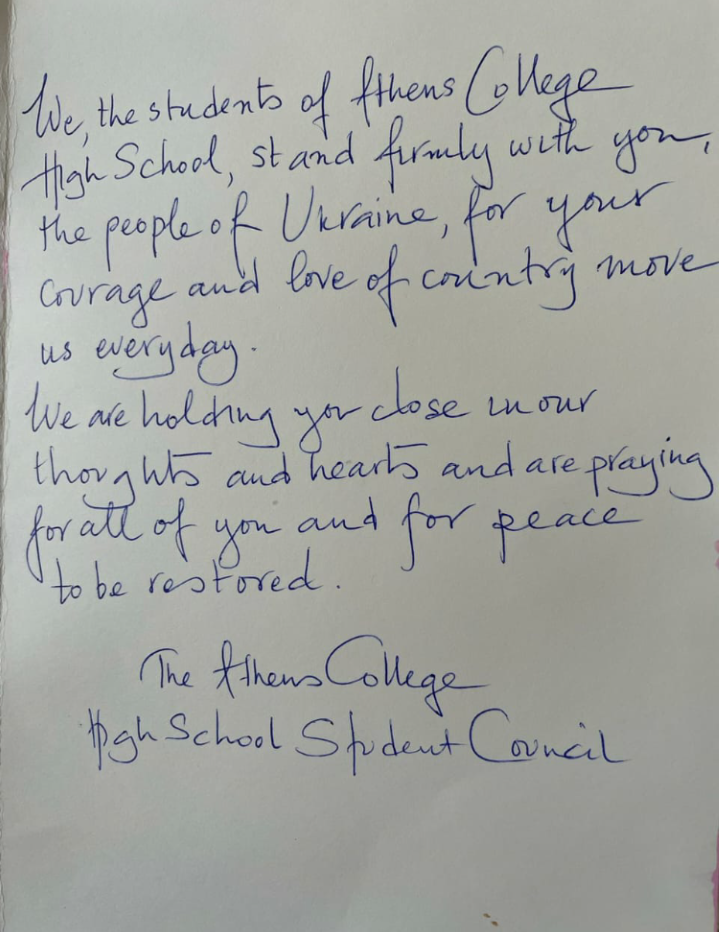 We, the students of Athens College
High School, stand firmly with you,
the people of Ukraine, for your
courage and love of country move
us everyday.
We are holding you close in our
thoughts and hearts and are praying
for all of you and for peace
to be restored.
The Athens College
High School Student Council